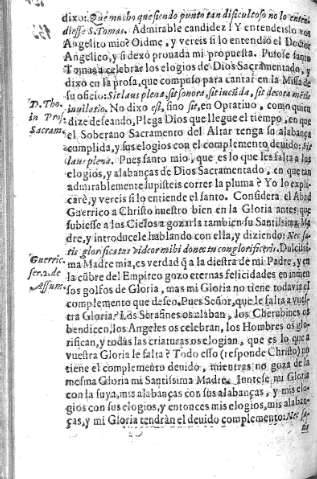 dixo: Que mucho que siendo punto tan dificultoso no lo entendiesse S. Tomas. Admirable candidez! Y entendeislo vos
Angelito mio? Oidme, y vereis si lo entendiò el Doctor
Angelico, y si dexò prouada mi propuesta. Pusose santo
Tomas à celebrar los elogios de Dios Sacramentado, y
dixo en la prosa, que compuso para cantar en la Missa de
su oficio: Sit laus plena, sit sonora, sit iucunda, sit decora mentis
D. Tho.
in Pros.
Sacram.
iubilatio. No dixo est, sino sit, en Optatiuo, como quien
dize deseando, Plega Dios que llegue el tiempo, en que
el Soberano Sacramento del Altar tenga su alabança
cumplida, y sus elogios con el complemento deuido: Sit
laus plena. Pues santo mio, que es lo que les falta a los
elogios, y alabanças de Dios Sacramentado, en que tan
admirablemente supisteis correr la pluma? Yo lo explicarè, y vereis si lo entiende el santo. Considera el Abad
Guerrico a Christo nuestro bien en la Gloria antes que
subiesse a los Cielos a gozarla tambien su Santissima Madre, y introducele hablando con ella, y diziendo: Nec satis glorificatus videor mihi donec tu conglorificeris.
Guerric.
ser. 2. de
Assum.
Dulcissima
Madre mia, es verdad q̃ a la diestra de mi Padre, y en
la cũbre del Empireo gozo eternas felicidades en inmensos golfos de Gloria, mas mi Gloria no tiene todavia el
complemento que deseo. Pues Señor, que le falta a vuestra Gloria? Los Serafines os alaban, los Cherubines os
bendicen, los Angeles os celebran, los Hombres os glorifican, y todas las criaturas os elogian, que es lo que a
vuestra Gloria le falta? Todo esso (responde Christo) no
tiene el complemẽto deuido, mientras no goza de la
mesma Gloria mi Santissima Madre. Iuntese mi Gloria
con la suya, mis alabanças con sus alabanças, y mis elogios con sus elogios, y entonces mis elogios, mis alabanças, y mi Gloria tendràn el deuido complemento: Nec sa-
tis